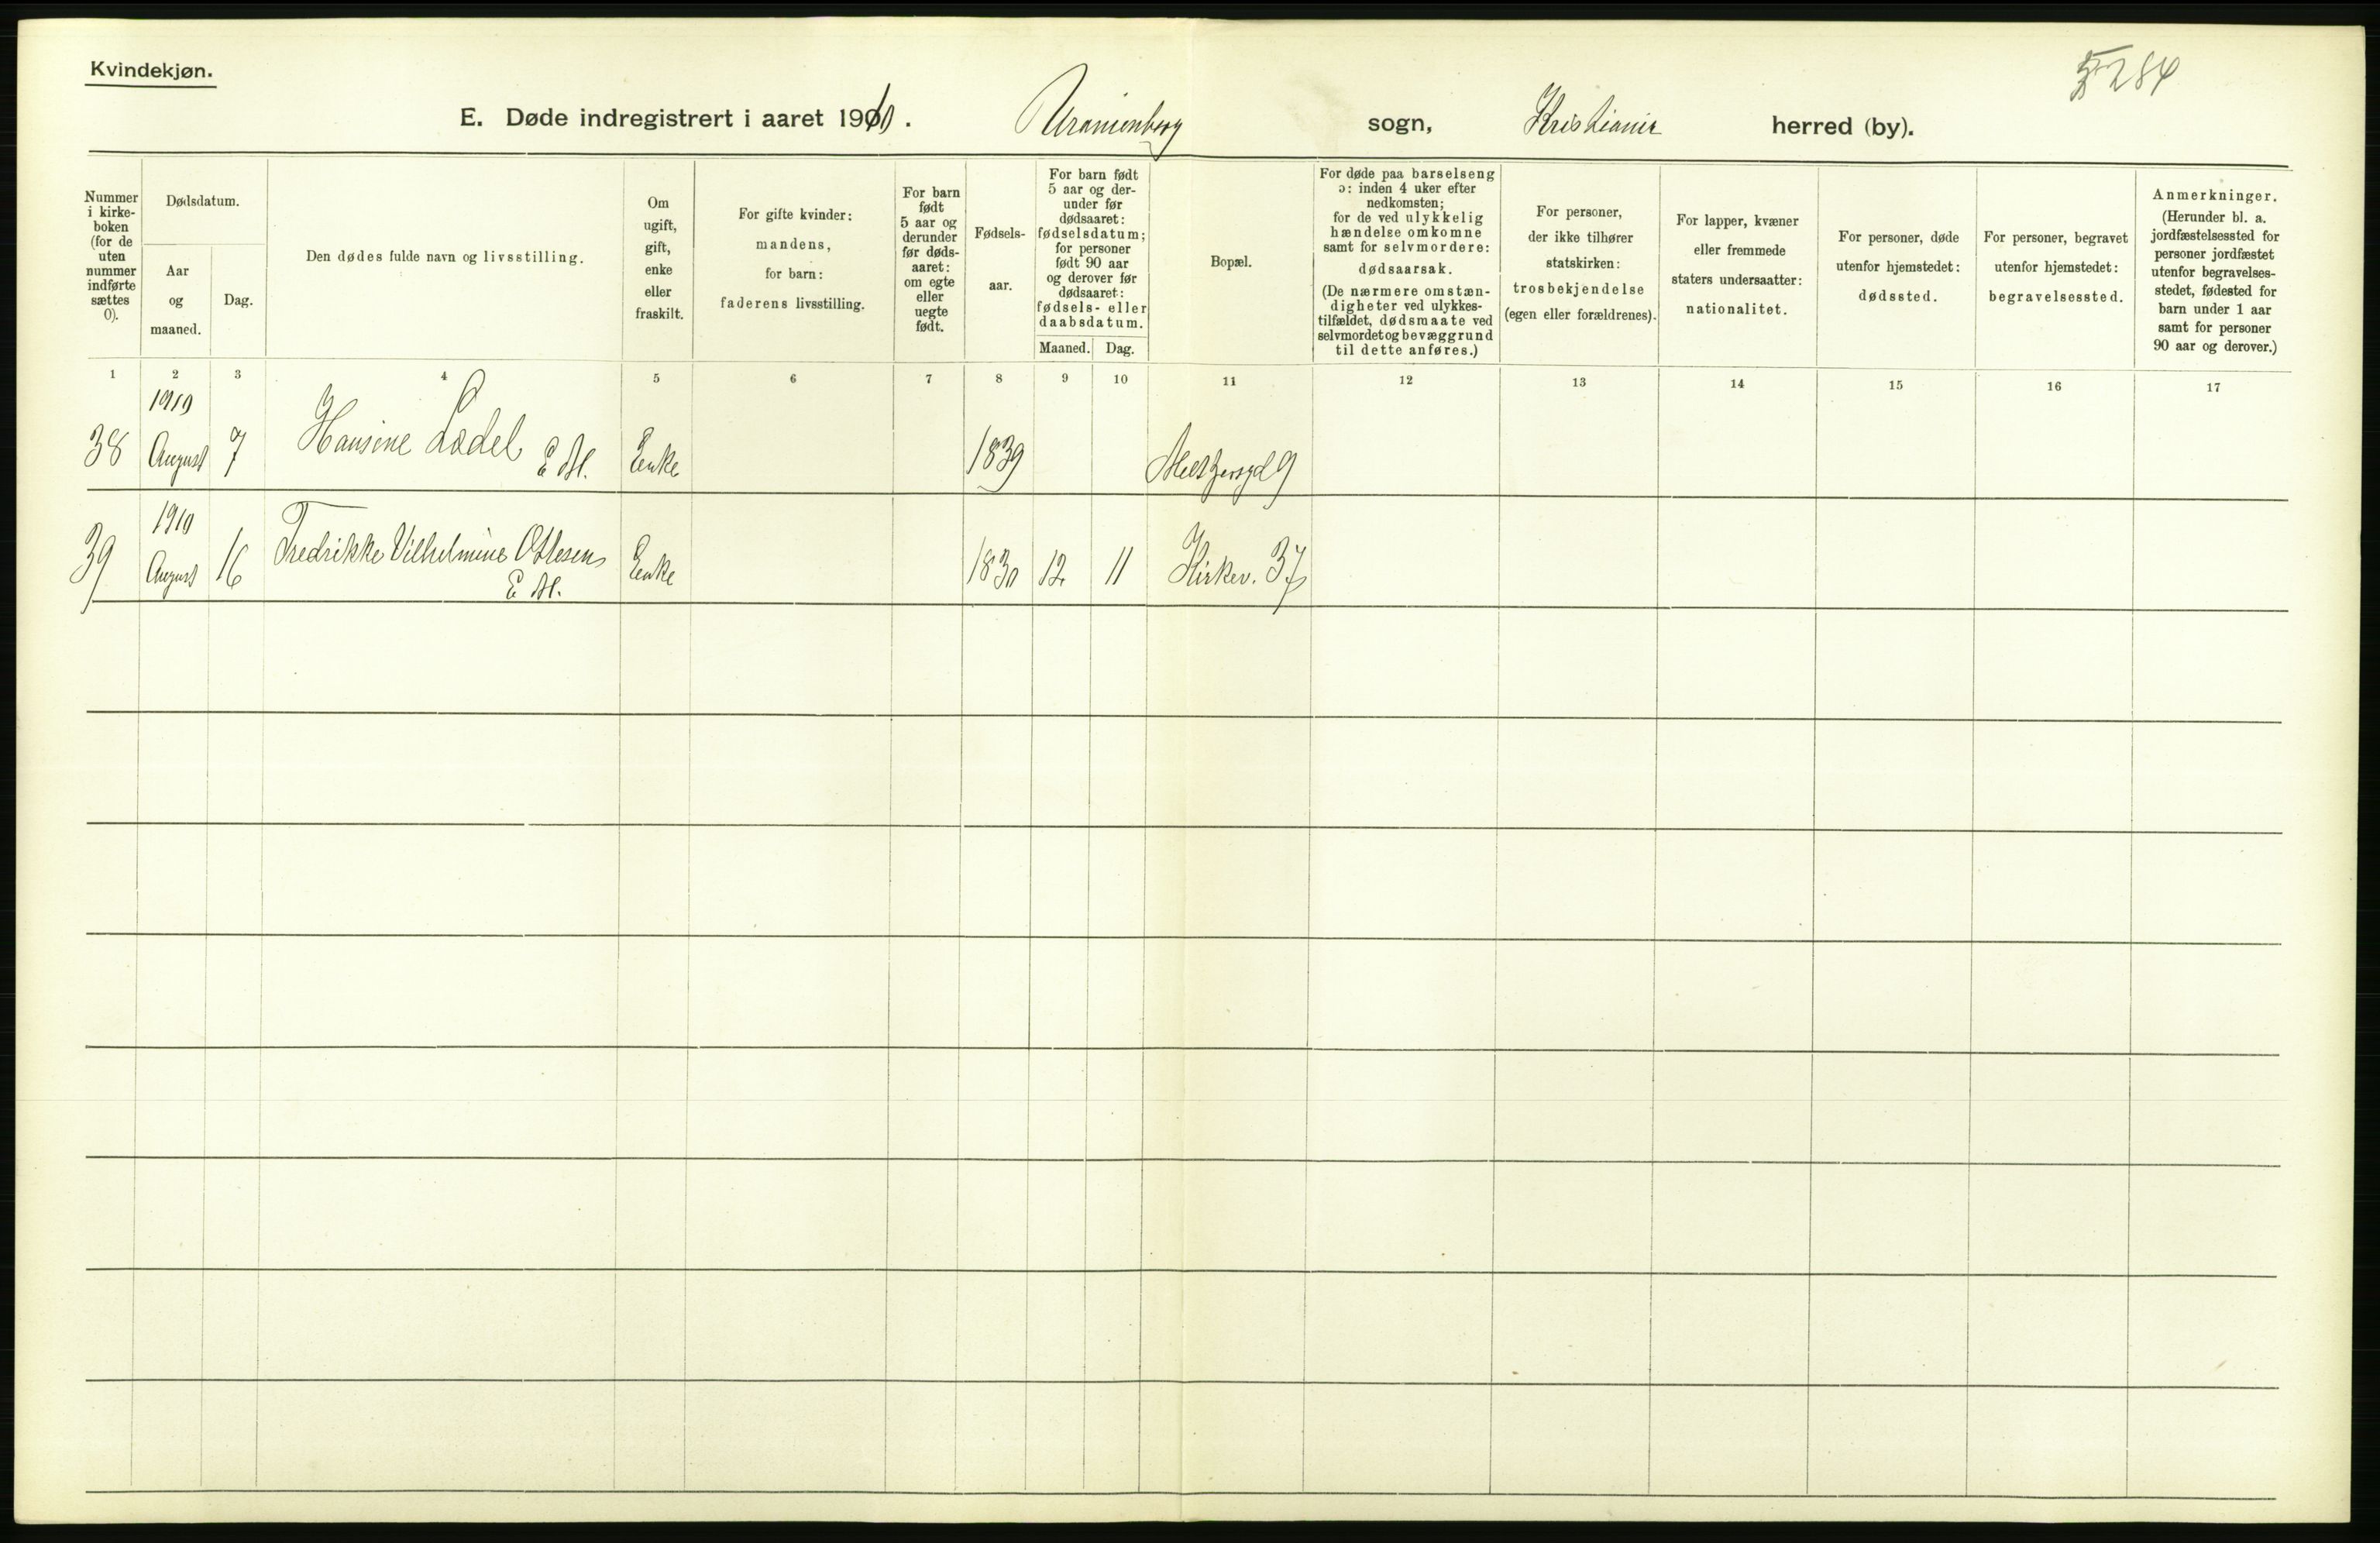 Kvindekjøn.
284
E. Døde indregistrert i aaret 1910. Uranienborg sogn, Kristiania herred (by).
Nummer
i kirke-
boken
(for de
uten
nummer
indførte
sættes
0).
Dødsdatum.
Aar
og
maaned.
Dag.
Den dødes fulde navn og livsstilling.
Om
ugift,
gift,
enke
eller
fraskilt.
For gifte kvinder:
mandens,
for barn:
faderens livsstilling.
For barn
født
5 aar og
derunder
før døds-
aaret:
om egte
eller
uegte
født.
Fødsels-
aar.
For barn født
5 aar og der-
under før
dødsaaret:
fødselsdatum;
for personer
født 90 aar
og derover før
dødsaaret:
fødsels- eller
daabsdatum.
Maaned. Dag.
Bopæl.
For døde paa barselseng
ɔ: inden 4 uker efter
nedkomsten;
for de ved ulykkelig
hændelse omkomne
samt for selvmordere:
dødsaarsak.
(De nærmere omstæn-
digheter ved ulykkes-
tilfældet, dødsmaate ved
selvmordet og bevæggrund
til dette anføres.)
For personer,
der ikke tilhører
statskirken:
trosbekjendelse
(egen eller forældrenes).
For lapper, kvæner
eller fremmede
staters undersaatter:
nationalitet.
For personer, døde
utenfor hjemstedet:
dødssted.
For personer, begravet
utenfor hjemstedet:
begravelsessted.
Anmerkninger.
(Herunder bl. a.
jordfæstelsessted for
personer jordfæstet
utenfor begravelses-
stedet, fødested for
barn under 1 aar
samt for personer
90 aar og derover.)
1 2 3 4 5 6 7 8 9 10 11 12 13 14 15 16 17
1910
38 August 7 Hansine Lødel Enke 1839 9
1910
39 August 16 Fredrikke Vilhelmine Ottesen Enke 1830 12 11 Kirkev. 37